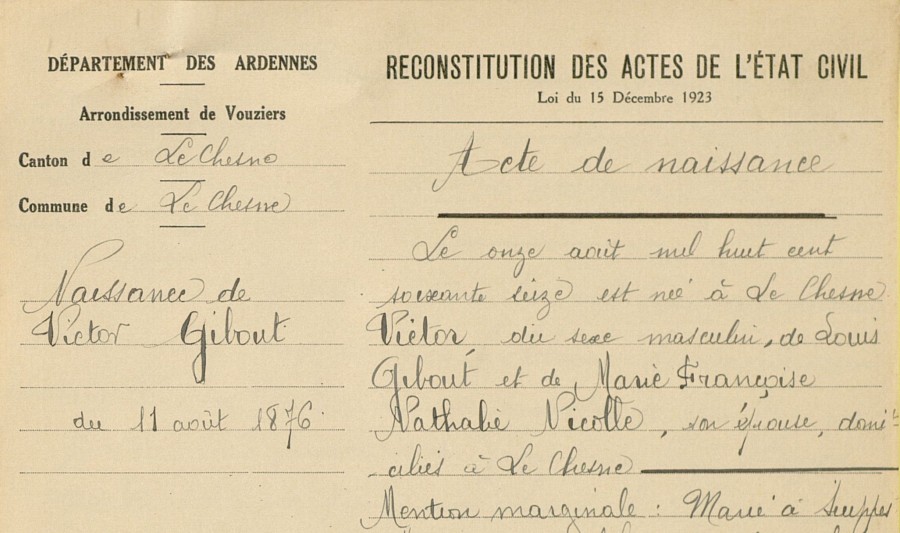 DÉPARTEMENT DES ARDENNES
Arrondissement de Vouziers
Canton de Le Chesne
Commune de Le Chesne
Naissance de
Victor Gibout
du 11 août 1876.
RECONSTITUTION DES ACTES DE L'ÉTAT CIVIL
Loi du 15 Décembre 1923
Acte de naissance
Le onze août mil huit cent
soixante seize est né à Le Chesne
Victor, du sexe masculin, de Louis
Gibout et de Marie Françoise
Nathalie Nicolle, son épouse, domi-
ciliés à Le Chesne
Mention marginale : Marié à Suippes